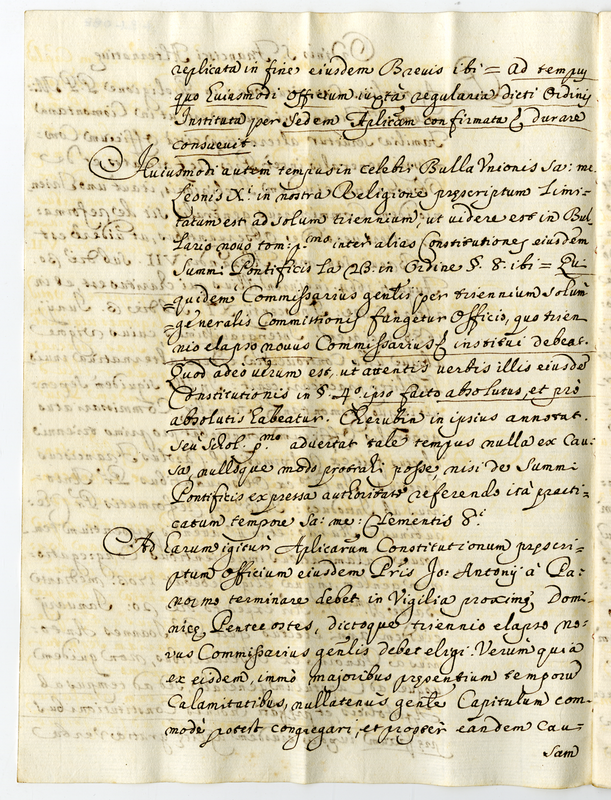 replicata in fine eiusdem Brevis ibi = ad tempus
quo huiusmodi officium iuxtà regularia dicti Ordinis
Instituta per Sedem Aplicam confirmata & durare
consuevit
Huiusmodi autem tempus in celebri Bulla Unionis Sa: me:
Leonis X.i in nostra Religione pręscriptum limi=
tatum est ad solum triennium: ut videre est in Bul=
lario novo tom: p.mo inter alias Constitutiones eiusdem
Summi Pontificis la 23. in Ordine §. 8. ibi = Qui
=quidem Commissarius genlis per triennium solum
=generalis Commissionis fungetur Officio, quo trien
nio elapso novus Commissarius & institui debeat.
Quod adeo verum est, ut attentis verbis illis eiusdē
Constitutionis in §. 4.o ipso facto absolutus, et pro
absolutis habeatur. Cherubin in ipsius annotat.
seu Schol. p.mo advertat tale tempus nulla ex Cau=
sa, nulloque modo protrahi posse, nisi de Summi
Pontificis expressa authoritate referendo ità practi=
catum tempore Sa: me: Clementis 8.i
Ad harum igitur Aplicarum Constitutionum pręscri=
ptum Officium eiusdem Pris Jo: Antonij à Pa=
normo terminare debet in Vigilia proximę Domi=
nicę Pentecostes, dictoque triennio elapso no=
vus Commissarius genlis debet eligi. Verum quia
ex eisdem, immò majoribus pręsentium temporū
Calamitatibus, nullatenus genle Capitulum com=
modè potest congregari, et propter eandem Cau=
sam